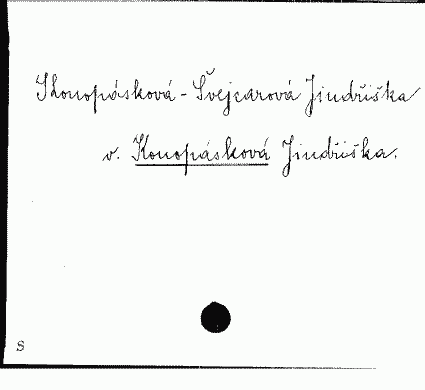 Konopásková-Švejcarová Jindřiška
v. Konopásková Jindřiška.
S